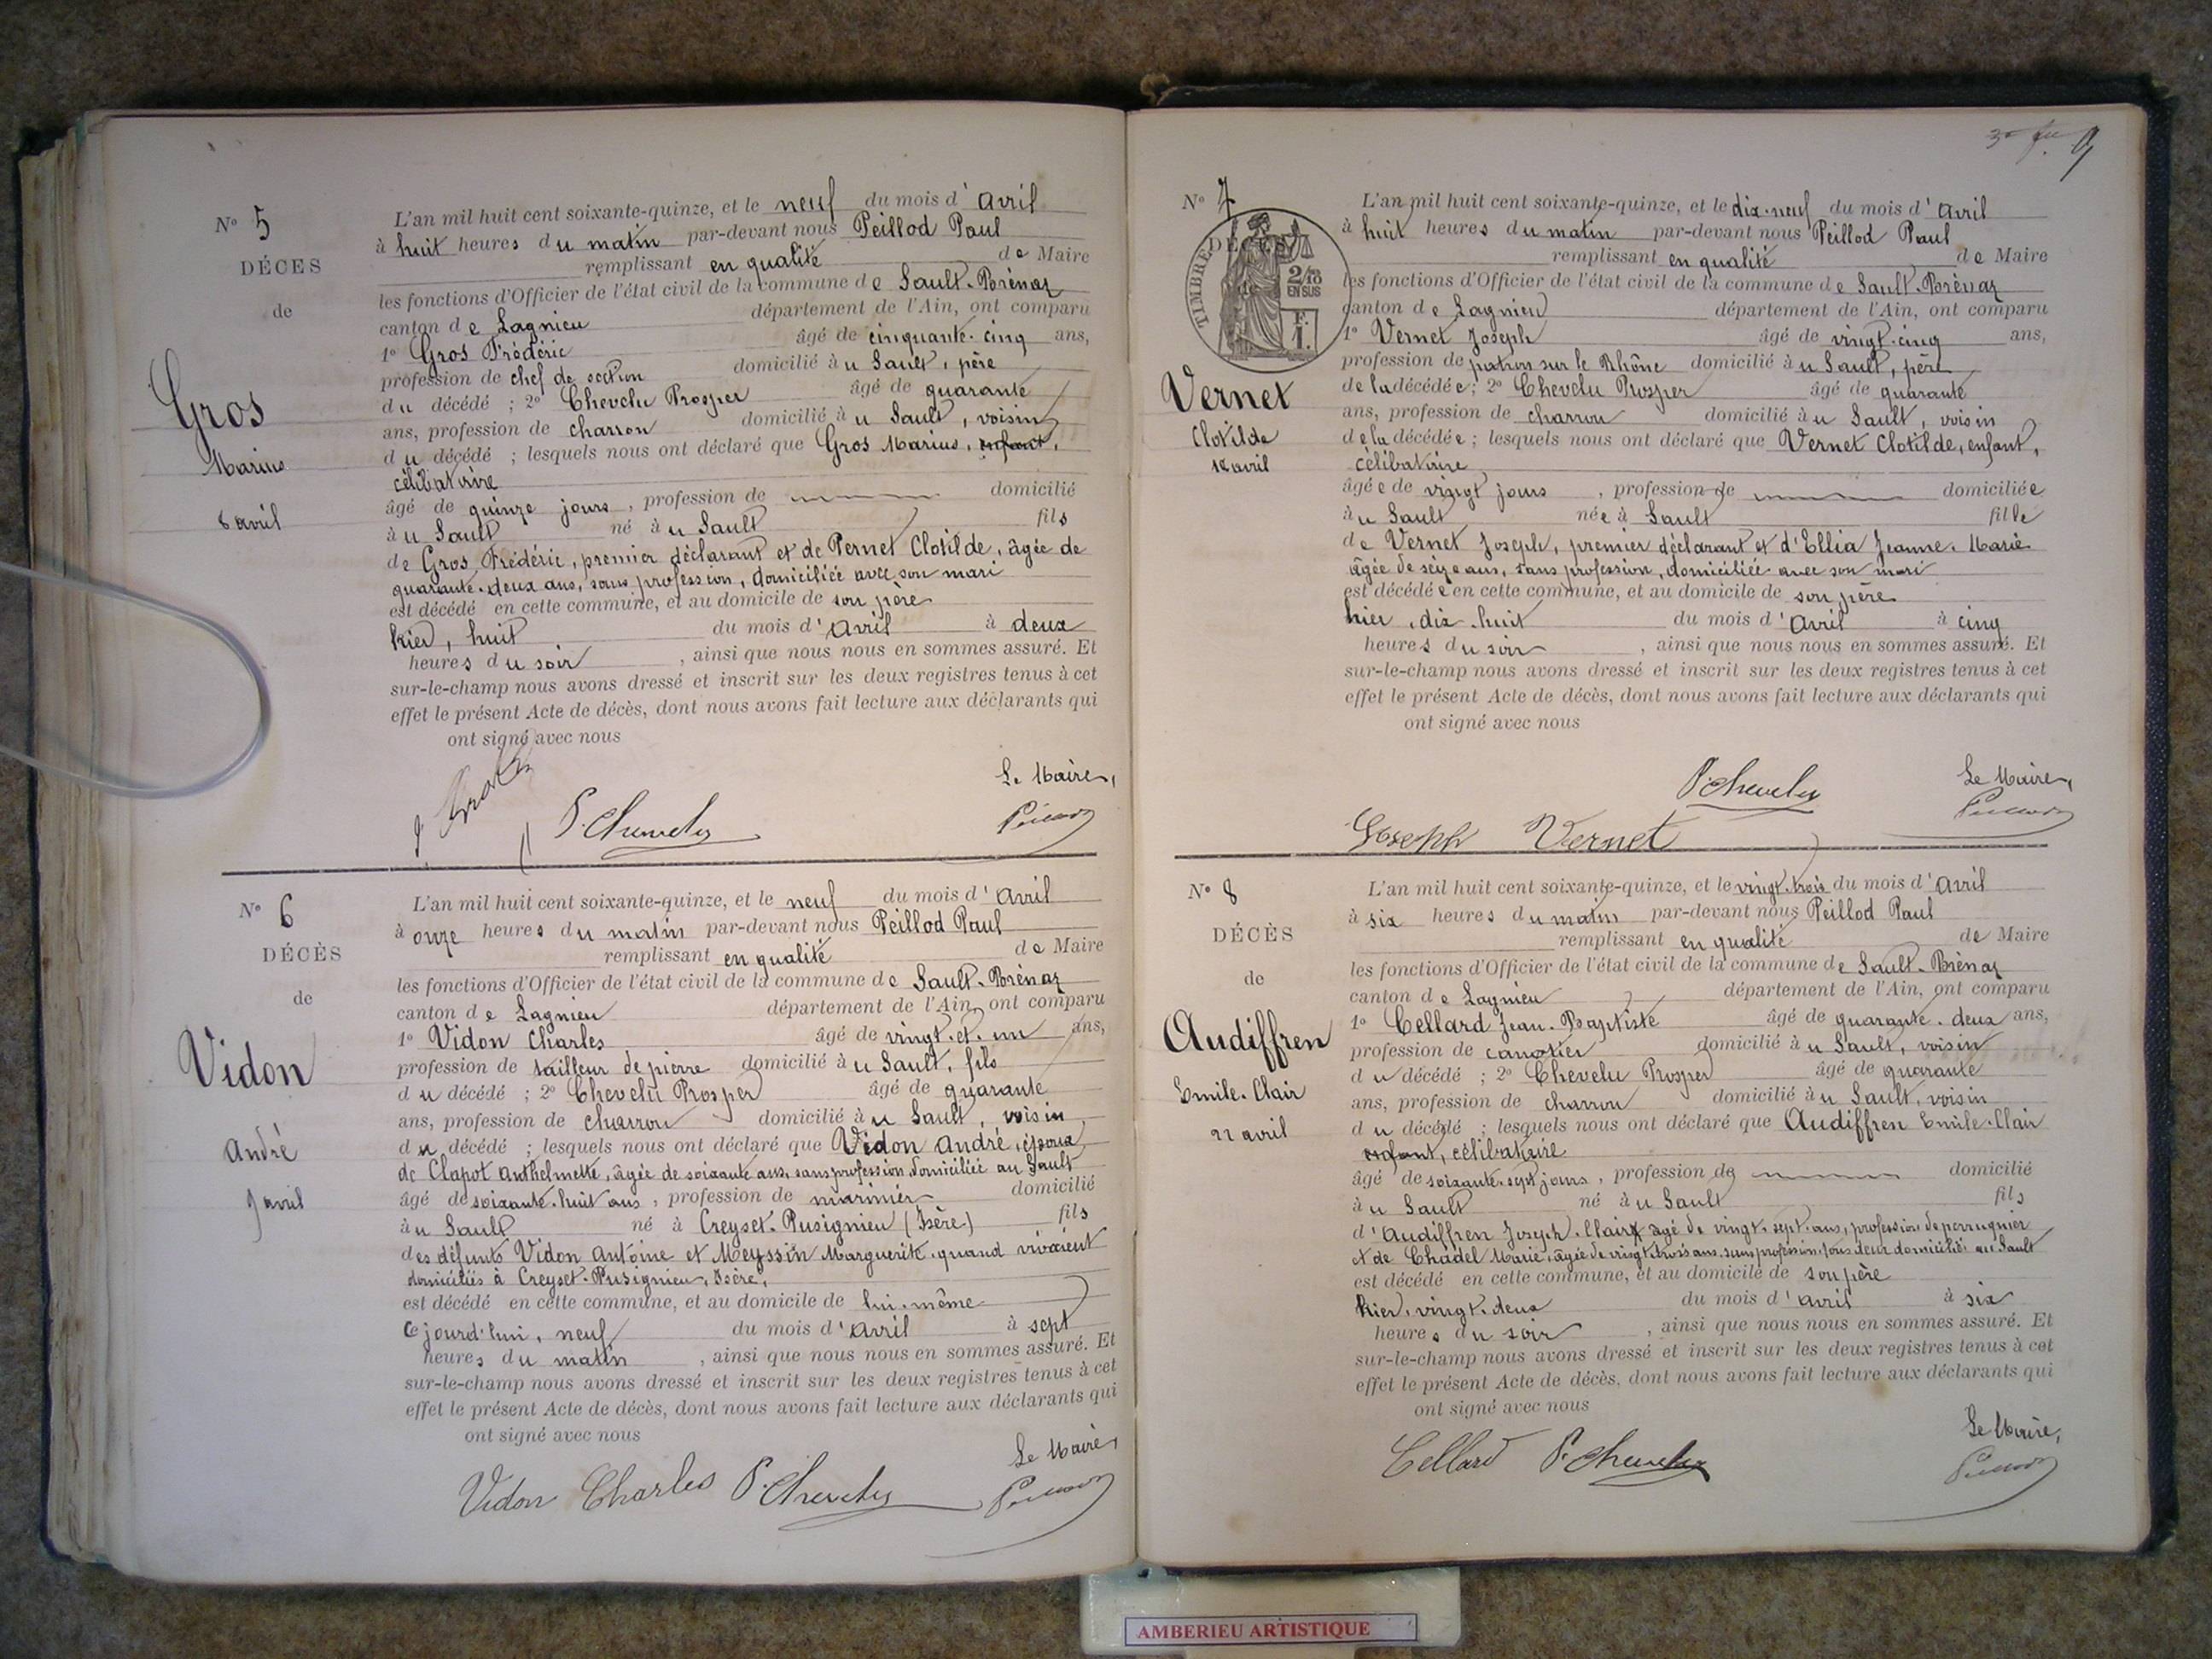 N° 5
DÉCES
de
Gros
Marius
8 avril
L'an mil huit cent soixante-quinze, et le neuf du mois d'avril
à huit heures du matin par-devant nous Peillod Paul
remplissant en qualité de Maire
les fonctions d'Officier de l'état civil de la commune de Sault-Brénaz
canton de Lagnieu département de l'Ain, ont comparu
1° Gros Frédéric âgé de cinquante-cinq ans,
profession de chef de section domicilié au Sault, père
du décédé ; 2° Chevelu Prosper âgé de quarante
ans, profession de charron domicilié au Sault, voisin
du décédé ; lesquels nous ont déclaré que Gros Marius, enfant,
célibataire
âgé de quinze jours, profession de domicilié
au Sault né au Sault fils
de Gros Frédéric, premier déclarant et de Pernet Clotilde, âgée de
quarante-deux ans, sans profession, domiciliée avec son mari
est décédé en cette commune, et au domicile de son père
hier, huit du mois d'avril à deux
heures du soir, ainsi que nous nous en sommes assuré. Et
sur-le-champ nous avons dressé et inscrit sur les deux registres tenus à cet
effet le présent Acte de décès, dont nous avons fait lecture aux déclarants qui
ont signé avec nous
Le Maire,
P. Chevelu
Peillod
N° 6
DÉCÈS
de
Vidon
André
9 avril
L'an mil huit cent soixante-quinze, et le neuf du mois d'avril
à onze heures du matin par-devant nous Peillod Paul
remplissant en qualité de Maire
les fonctions d'Officier de l'état civil de la commune de Sault-Brénaz
canton de Lagnieu département de l'Ain, ont comparu
1° Vidon Charles âgé de vingt-et-un ans,
profession de tailleur de pierre domicilié au Sault, fils
du décédé ; 2° Chevelu Prosper âgé de quarante
ans, profession de charron domicilié au Sault, voisin
du décédé ; lesquels nous ont déclaré que Vidon André, époux
de Clapot Anthelmette, âgée de soixante ans, sans profession domiciliée au Sault
âgé de soixante-huit ans, profession de marinier domicilié
au Sault né à Creyset-Pusignieu (Isère) fils
des défunts Vidon Antoine et Meyssin Marguerite quand vivaient
domiciliés à Creyset-Pusignieu, Isère,
est décédé en cette commune, et au domicile de lui-même
Ce jourd'hui, neuf du mois d'avril à sept
heures du matin, ainsi que nous nous en sommes assuré. Et
sur-le-champ nous avons dressé et inscrit sur les deux registres tenus à cet
effet le présent Acte de décès, dont nous avons fait lecture aux déclarants qui
ont signé avec nous
Le Maire,
Vidon Charles P. Chevelu Peillod
9
N° 7
TIMBRE
2/10
EN SUS
F.
1.
Vernet
Clotilde
18 avril
L'an mil huit cent soixante-quinze, et le dix-neuf du mois d'avril
à huit heures du matin par-devant nous Peillod Paul
remplissant en qualité de Maire
les fonctions d'Officier de l'état civil de la commune de Sault-Brénaz
canton de Lagnieu département de l'Ain, ont comparu
1° Vernet Joseph âgé de vingt-cinq ans,
profession de patron sur le Rhône domicilié au Sault, père
de la décédée ; 2° Chevelu Prosper âgé de quarante
ans, profession de charron domicilié au Sault, voisin
de la décédée ; lesquels nous ont déclaré que Vernet Clotilde, enfant,
célibataire
âgée de vingt jours, profession de domiciliée
au Sault née à Sault fille
de Vernet Joseph, premier déclarant et d'Ellia Jeanne-Marie
âgée de seize ans, sans profession, domiciliée avec son mari
est décédée en cette commune, et au domicile de son père
hier, dix-huit du mois d'avril à cinq
heures du soir, ainsi que nous nous en sommes assuré. Et
sur-le-champ nous avons dressé et inscrit sur les deux registres tenus à cet
effet le présent Acte de décès, dont nous avons fait lecture aux déclarants qui
ont signé avec nous
P. Chevelu Le Maire,
Joseph Vernet Peillod
N° 8
DÉCÈS
de
Audiffren
Emile-Clair
22 avril
L'an mil huit cent soixante-quinze, et le vingt-trois du mois d'avril
à six heures du matin par-devant nous Peillod Paul
remplissant en qualité de Maire
les fonctions d'Officier de l'état civil de la commune de Sault-Brénaz
canton de Lagnieu département de l'Ain, ont comparu
1° Cellard Jean-Baptiste âgé de quarante-deux ans,
profession de canotier domicilié au Sault, voisin
du décédé ; 2° Chevelu Prosper âgé de quarante
ans, profession de charron domicilié au Sault, voisin
du décédé ; lesquels nous ont déclaré que Audiffren Emile-Clair
enfant, célibataire
âgé de soixante-sept jours, profession de domicilié
au Sault né au Sault fils
d'Audiffren Joseph-Clair âgé de vingt-sept ans, profession de perruquier
et de Chadel Marie, âgée de vingt-trois ans, sans profession, tous deux domiciliés au Sault
est décédé en cette commune, et au domicile de son père
hier, vingt-deux du mois d'avril à six
heures du soir, ainsi que nous nous en sommes assuré. Et
sur-le-champ nous avons dressé et inscrit sur les deux registres tenus à cet
effet le présent Acte de décès, dont nous avons fait lecture aux déclarants qui
ont signé avec nous
Le Maire,
Cellard P. Chevelu Peillod
AMBERIEU ARTISTIQUE